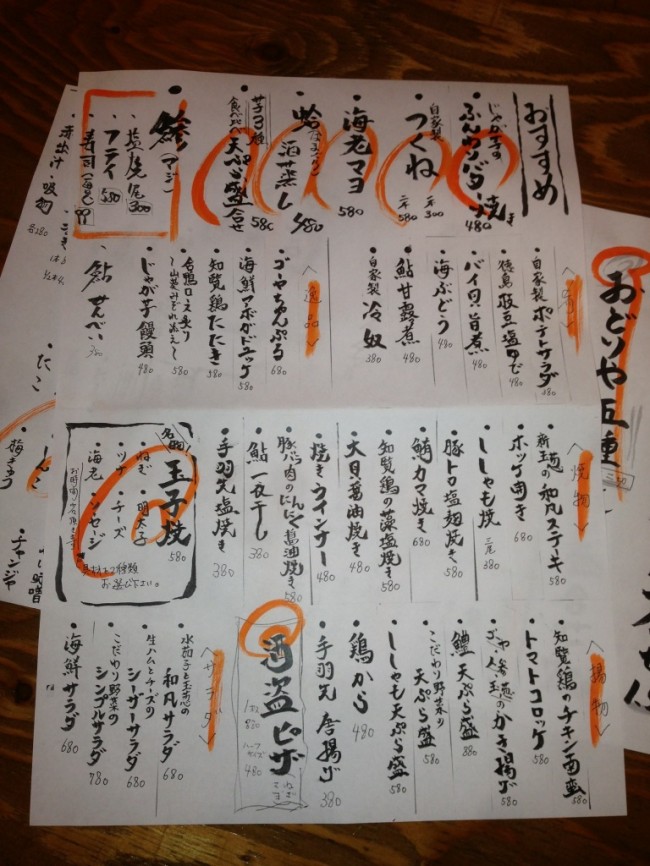 おすすめ
じゃが芋の
ふんわりバター焼き 480
自家製
つくね 一本 300
二本 580
海老マヨ 580
蛤(はまぐり)
酒蒸し 580
芋3種
食べ比べ 天ぷら盛合せ 580
鯵(アジ)
塩焼 300
フライ 350
寿司
自家製 ポテトサラダ 380
徳島 枝豆塩ゆで 480
バイ貝旨煮 480
海ぶどう 480
鮎甘露煮 480
自家製 冷奴 380
<逸品>
ゴーヤちゃんぷる 680
海鮮マーボがドユッケ 580
知覧鶏たたき 580
合鴨ロース炙り
〜山葵みぞれ添え〜 580
じゃが芋饅頭 480
鮎せんべい
<焼物>
新玉の和風ステーキ 580
ホッケ開き 680
ししゃも焼 三尾 380
豚トロ塩麹焼き 580
鮪カマ焼き 680
知覧鶏の藻塩焼き 580
大貝醤油焼き 480
焼きウインナー 480
豚バラ肉のにんにく醤油焼き 580
鮎一夜干し 380
手羽先塩焼き 380
名物!
玉子焼 580
・ねぎ ・明太子
・ツナ ・チーズ
・海老 ・ソーセージ
具材を2種類
お選び下さい。
<揚物>
知覧鶏のチキン南蛮 580
トマトコロッケ 580
かき揚げ 580
鱧天ぷら盛 880
こだわり野菜の
天ぷら盛 580
ししゃも天ぷら盛 580
鶏から 480
手羽先唐揚げ 380
酒盗ピザ
ハーフサイズ 480
<サラダ>
水茄子と玉葱の
和風サラダ 680
生ハムとチーズの
シーザーサラダ 680
こだわり野菜の
シンプルサラダ 780
海鮮サラダ 680
赤出汁・吸物 各280
たこ
梅きゅう
しんこ
チャンジャ
おどりや五種